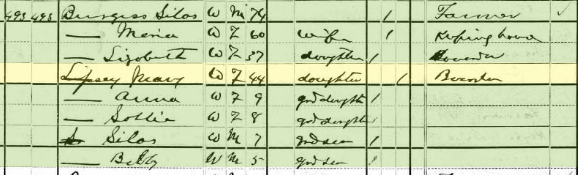 493 493 Burgess Silas W M 74 1 Farmer ✓
— Maria W F 60 wife 1 Keeping house
— Lizabeth W F 37 daughter 1 Boarder
Lipsey Mary W F 44 daughter 1 Boarder
— Anna W F 9 gd daughter 1
— Sallie W F 8 gd daughter 1
— Silas W M 7 gd son 1
— Billy W M 5 gd son 1